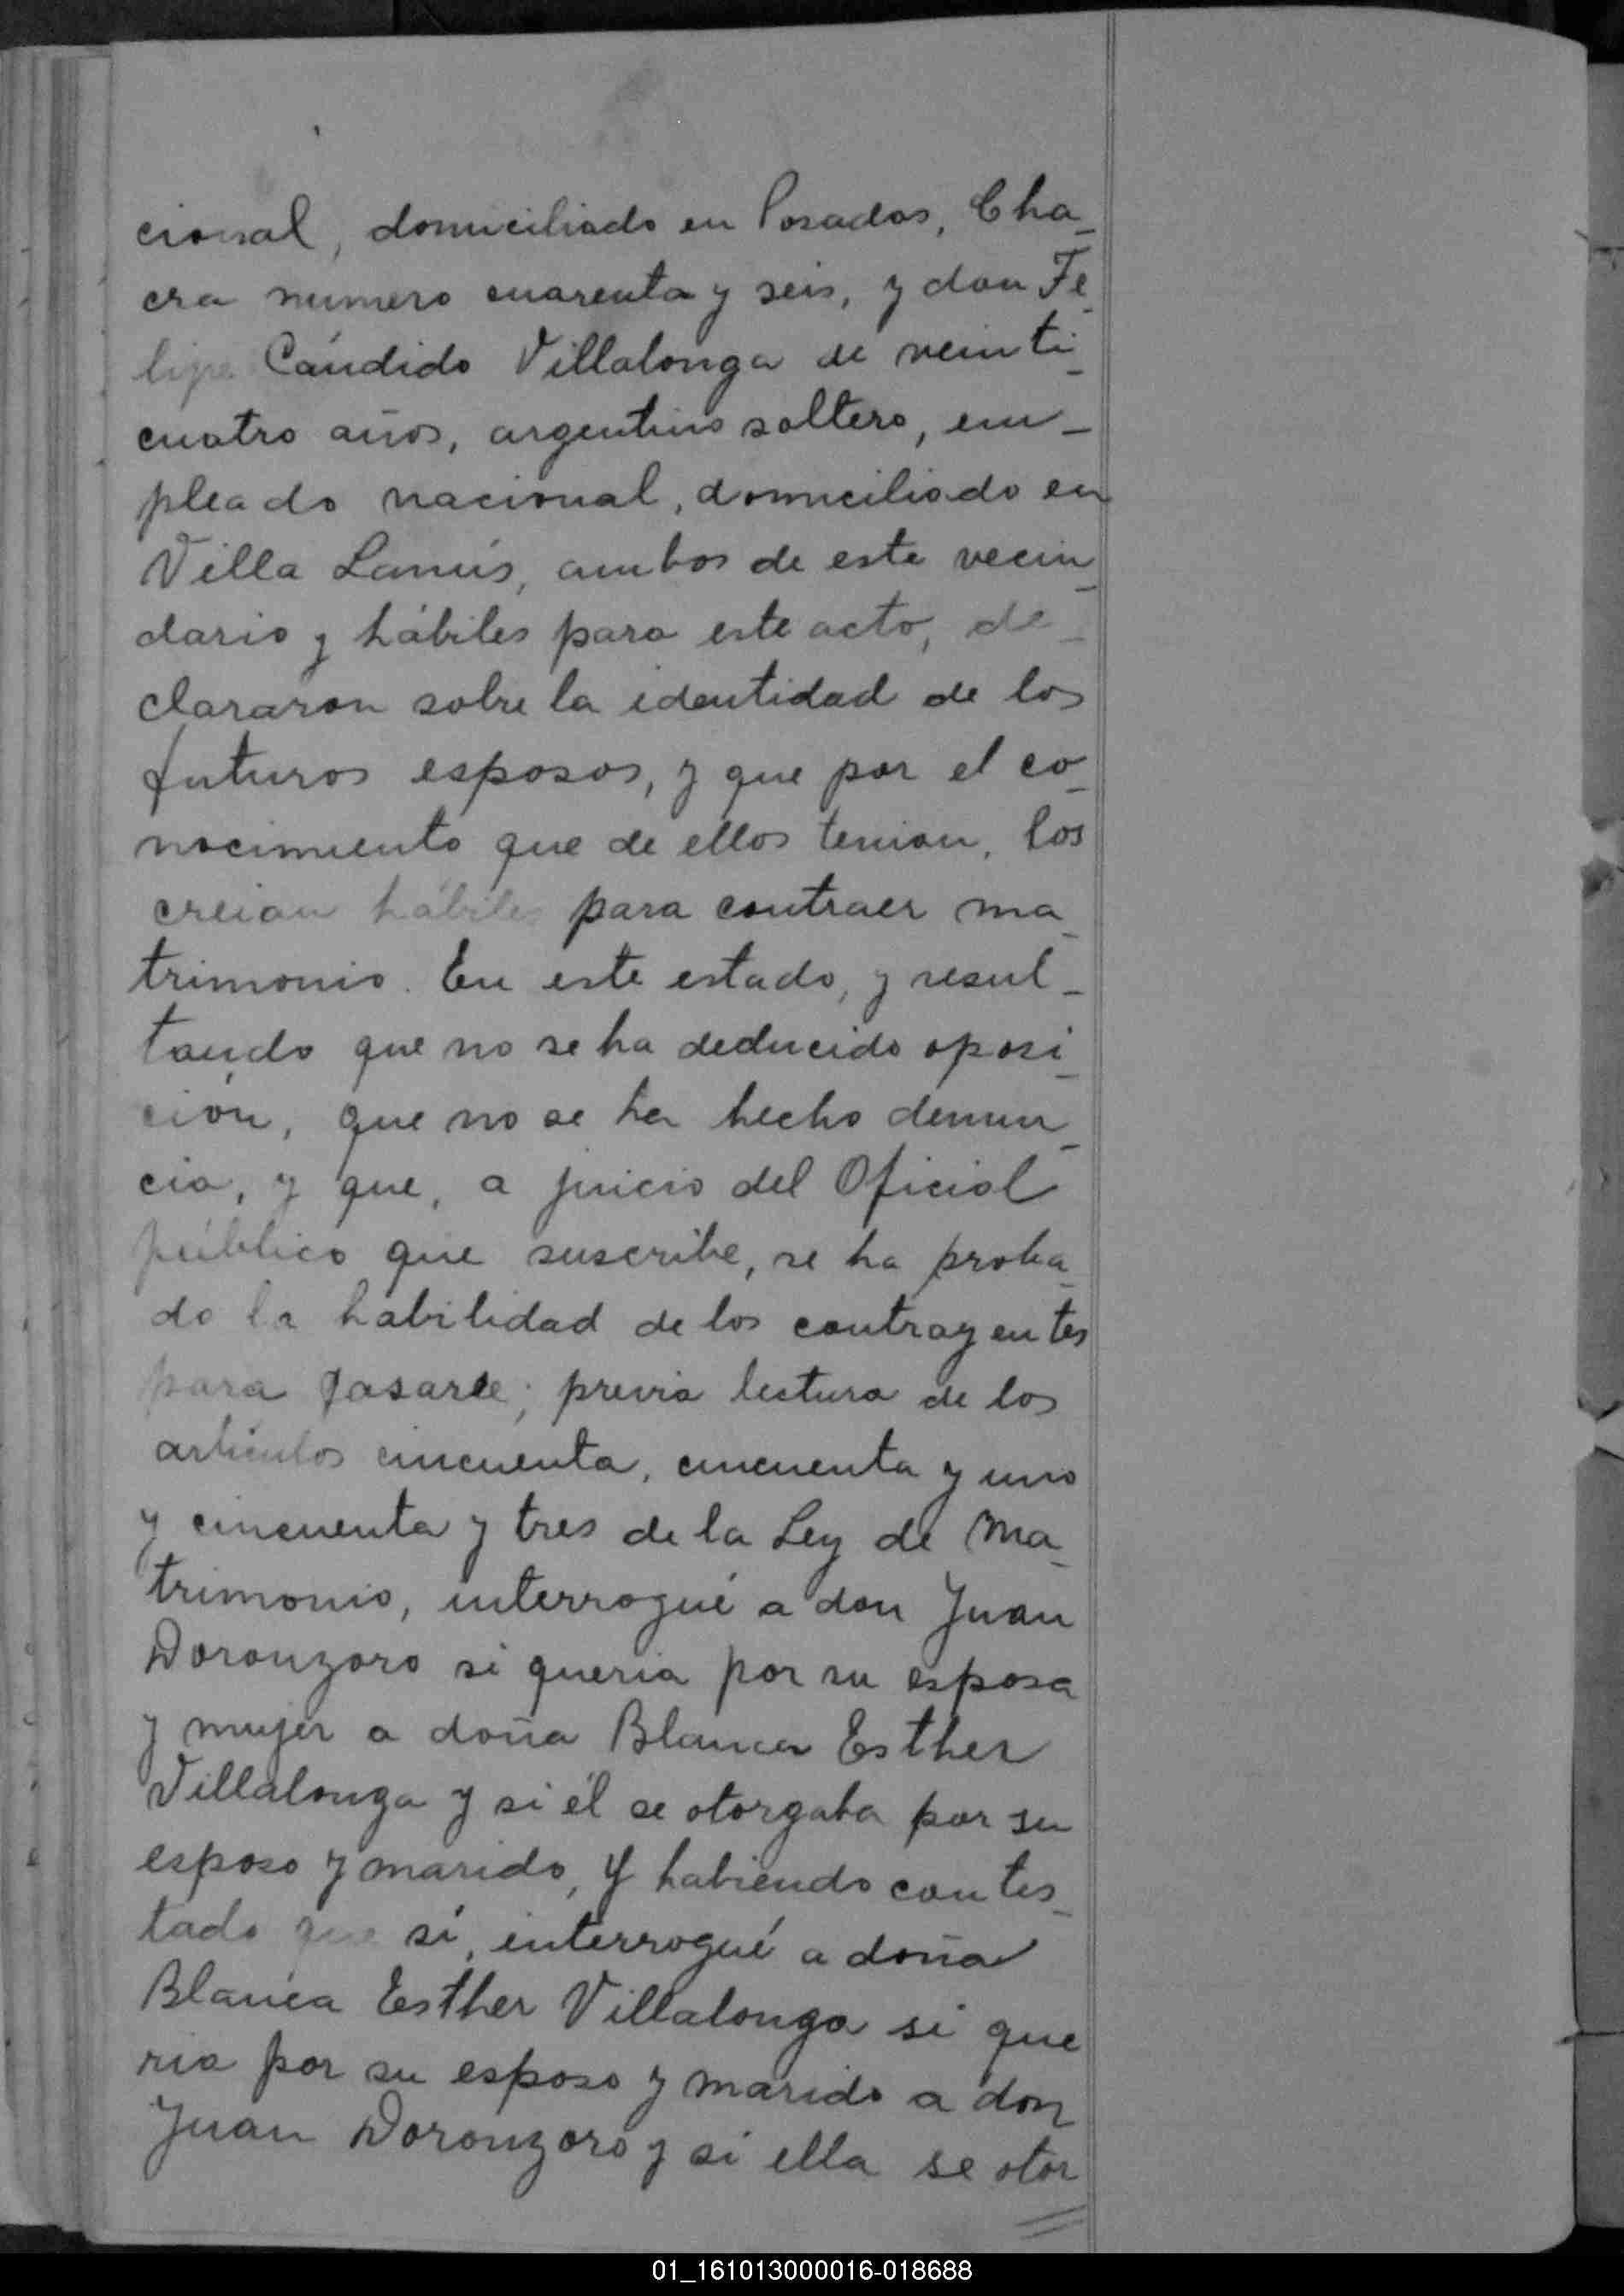 cional, domiciliado en Posadas, Cha_
cra numero cuarenta y seis, y don Fe_
lipe Cándido Villalonga de veinti_
cuatro años, argentino soltero, em_
pleado nacional, domiciliado en
Villa Lanús, ambos de este vecin_
dario y hábiles para este acto, de_
clararon sobre la identidad de los
futuros esposos, y que por el co_
nocimiento que de ellos tenian, los
creian hábiles para contraer ma_
trimonio. En este estado, y resul_
tando que no se ha deducido oposi_
ción, que no se ha hecho denun_
cia, y que, a juicio del Oficial
público que suscribe, se ha proba_
do la habilidad de los contrayentes
para casarse; previa lectura de los
artículos cincuenta, cincuenta y uno
y cincuenta y tres de la Ley de Ma_
trimonio, interrogué a don Juan
Doronzoro si queria por su esposa
y mujer a doña Blanca Esther
Villalonga y si él se otorgaba por su
esposo y marido, Y habiendo contes_
tado que sí, interrogué a doña
Blanca Esther Villalonga si que
ria por su esposo y marido a don
Juan Doronzoro y si ella se otor
=
01_161013000016-018688